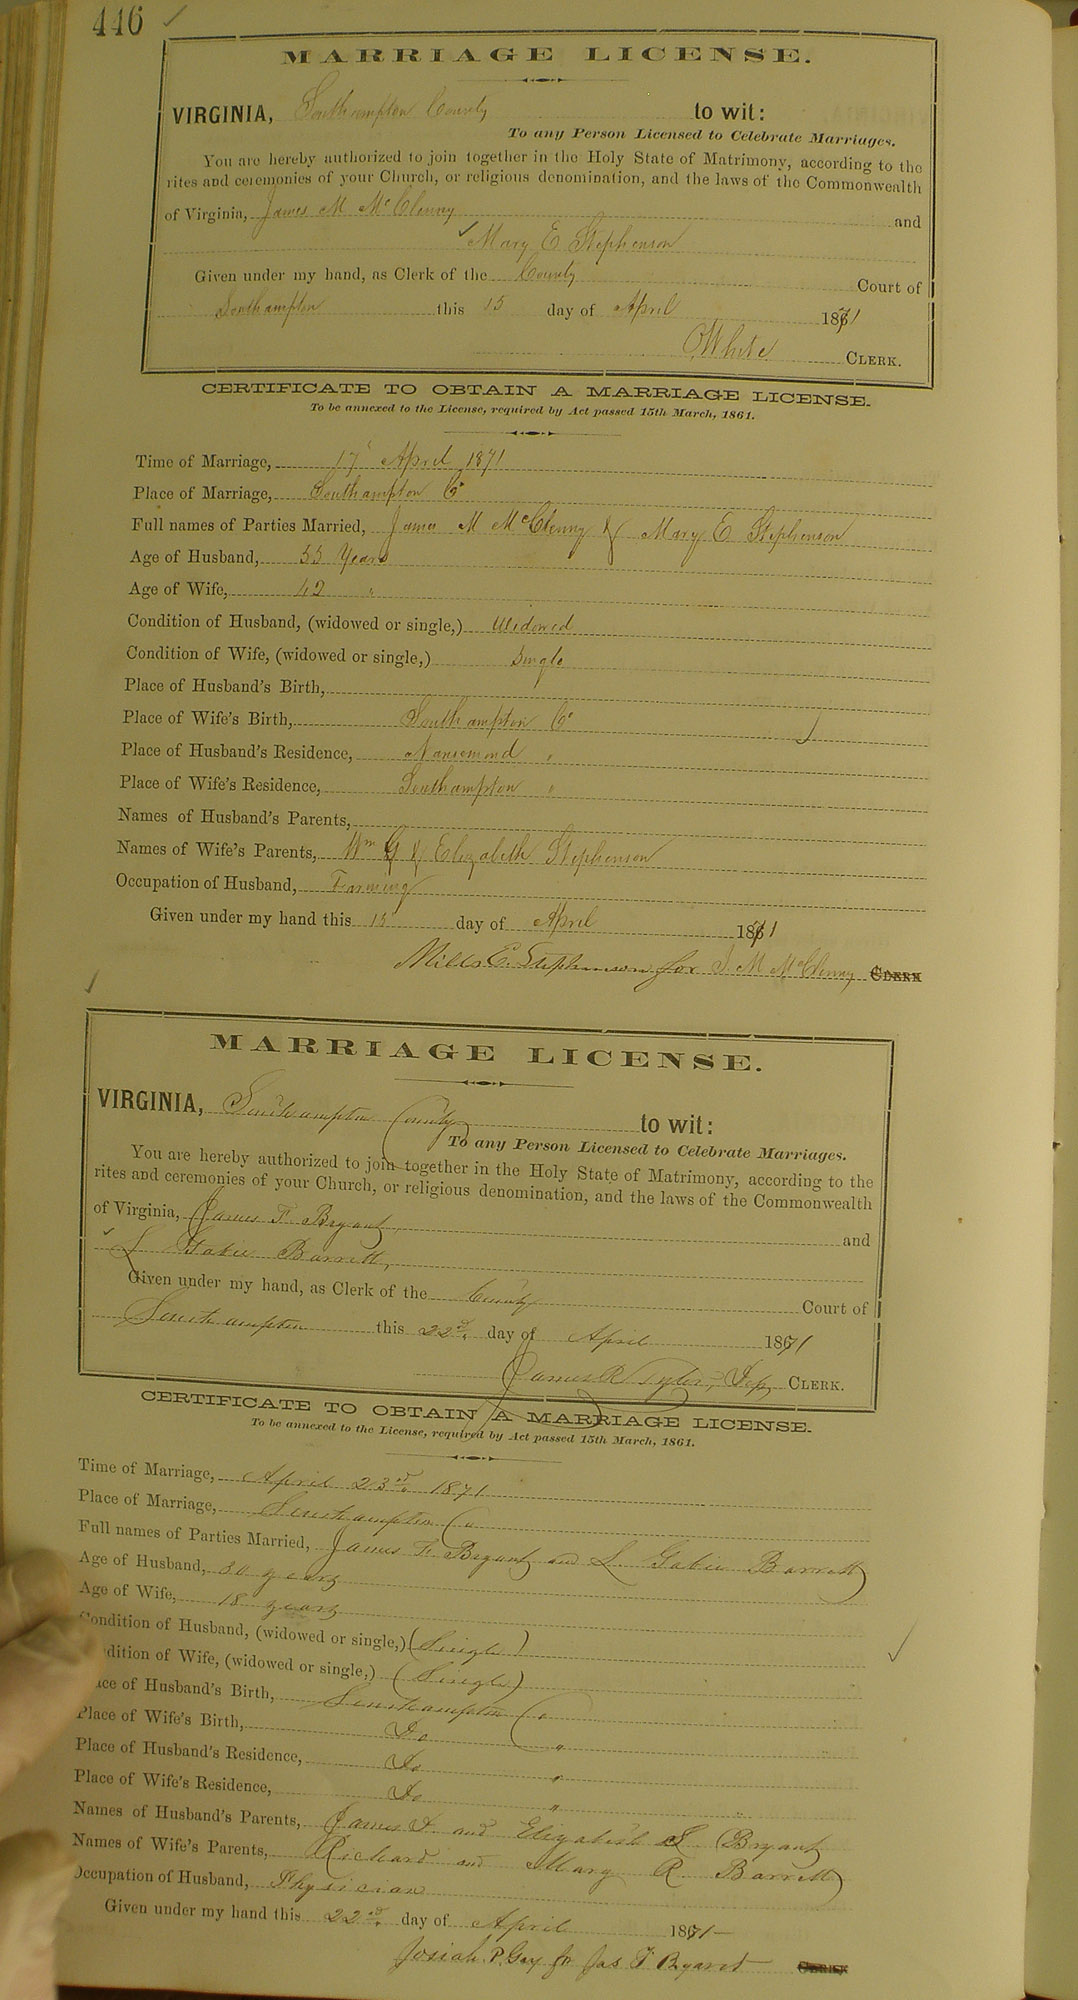 446
MARRIAGE LICENSE.
VIRGINIA, Southampton County to wit:
To any Person Licensed to Celebrate Marriages.
You are hereby authorized to join together in the Holy State of Matrimony, according to the
rites and ceremonies of your Church, or religious denomination, and the laws of the Commonwealth
of Virginia, James M McClenny and
Mary E Stephenson
Given under my hand, as Clerk of the County Court of
Southampton this 15 day of April 1871
White CLERK.
CERTIFICATE TO OBTAIN A MARRIAGE LICENSE.
To be annexed to the License, required by Act passed 15th March, 1861.
Time of Marriage, 17 April 1871
Place of Marriage, Southampton Co
Full names of Parties Married, James M McClenny & Mary E Stephenson
Age of Husband, 55 Years
Age of Wife, 42 "
Condition of Husband, (widowed or single,) Widowed
Condition of Wife, (widowed or single,) Single
Place of Husband's Birth,
Place of Wife's Birth, Southampton Co
Place of Husband's Residence, Nansemond "
Place of Wife's Residence, Southampton "
Names of Husband's Parents,
Names of Wife's Parents, Wm G & Elizabeth Stephenson
Occupation of Husband, Farming
Given under my hand this 15 day of April 1871
Mills E. Stephenson for J. M McClenny CLERK
MARRIAGE LICENSE.
VIRGINIA, Southampton County to wit:
To any Person Licensed to Celebrate Marriages.
You are hereby authorized to join together in the Holy State of Matrimony, according to the
rites and ceremonies of your Church, or religious denomination, and the laws of the Commonwealth
of Virginia, James F. Bryant, and
L Gabie Barrett,
Given under my hand, as Clerk of the County Court of
Southampton this 22d. day of April 1871
James R Tyler, Dep CLERK.
CERTIFICATE TO OBTAIN A MARRIAGE LICENSE.
To be annexed to the License, required by Act passed 15th March, 1861.
Time of Marriage, April 23rd. 1871
Place of Marriage, Southampton Co
Full names of Parties Married, James F. Bryant and L. Gabie Barrett
Age of Husband, 30 years
Age of Wife, 18 years
Condition of Husband, (widowed or single,) (Single)
dition of Wife, (widowed or single,) (Single)
ce of Husband's Birth, Southampton Co
Place of Wife's Birth, Do "
Place of Husband's Residence, Do "
Place of Wife's Residence, Do "
Names of Husband's Parents, James D. and Elizabeth S Bryant
Names of Wife's Parents, Richard and Mary R. Barrett
Occupation of Husband, Physician
Given under my hand this 22d. day of April 1871
Josiah. P. Gay for Jas F Bryant CLERK